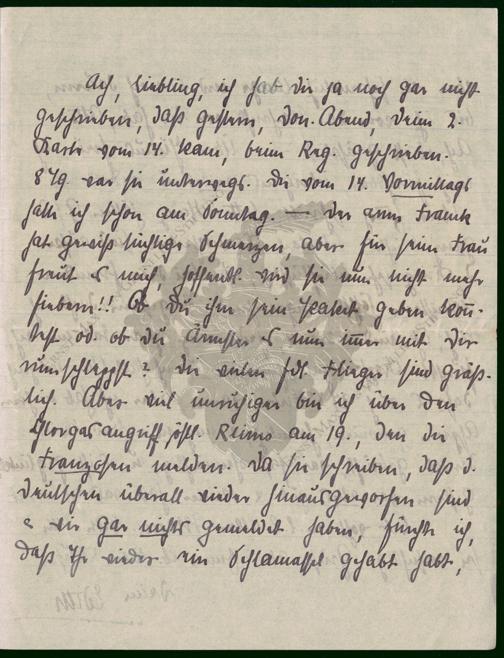 Ach, Liebling, ich hab dir ja noch gar nicht
geschrieben, daß gestern, Don. Abend, Deine 2.
Karte vom 14. kam, beim Reg. geschrieben.
8 Tg. war sie unterwegs. Die vom 14. Vormittags
hatte ich schon am Sonntag. — Der arme Franck
hat gewiß tüchtige Schmerzen, aber für seine Frau
freut es mich, hoffentl. wird sie nun nicht mehr
fiebern!! Ob Du ihm sein Paket geben konn-
test od. ob Du Ärmster es nun immer mit Dir
rumschleppst? Die vielen fdl. Flieger sind gräß-
lich. Aber viel unruhiger bin ich über den
Chlorgasangriff östl. Reims am 19., den die
Franzosen melden. Da sie schreiben, daß d.
Deutschen überall wieder hinausgeworfen sind
& wir gar nichts gemeldet haben, fürchte ich,
daß Ihr wieder ein Schlamassel gehabt habt,